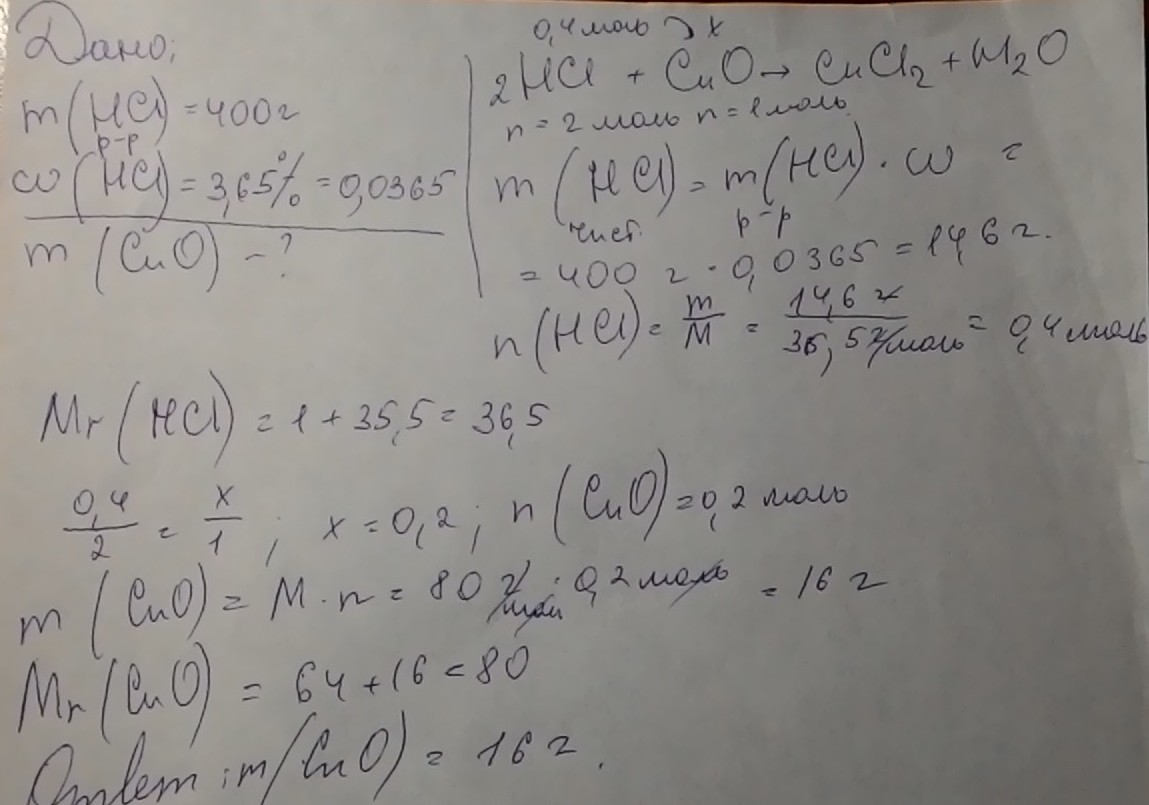 Дано;
m(HCl) = 400г
р-р
ω(HCl) = 3,65% = 0,0365
m(CuO) - ?
0,4 моль x
2HCl + CuO → CuCl2 + H2O
n = 2 моль n = 1 моль
m(HCl) = m(HCl) · ω =
чист. р-р
= 400 г · 0,0365 = 14,6 г.
n(HCl) = m/M = 14,6 г/36,5 г/моль = 0,4 моль
Mr(HCl) = 1 + 35,5 = 36,5
0,4/2 = x/1; x = 0,2; n(CuO) = 0,2 моль
m(CuO) = M · n = 80 г/моль · 0,2 моль = 16 г
Mr(CuO) = 64 + 16 = 80
Ответ: m(CuO) = 16 г.